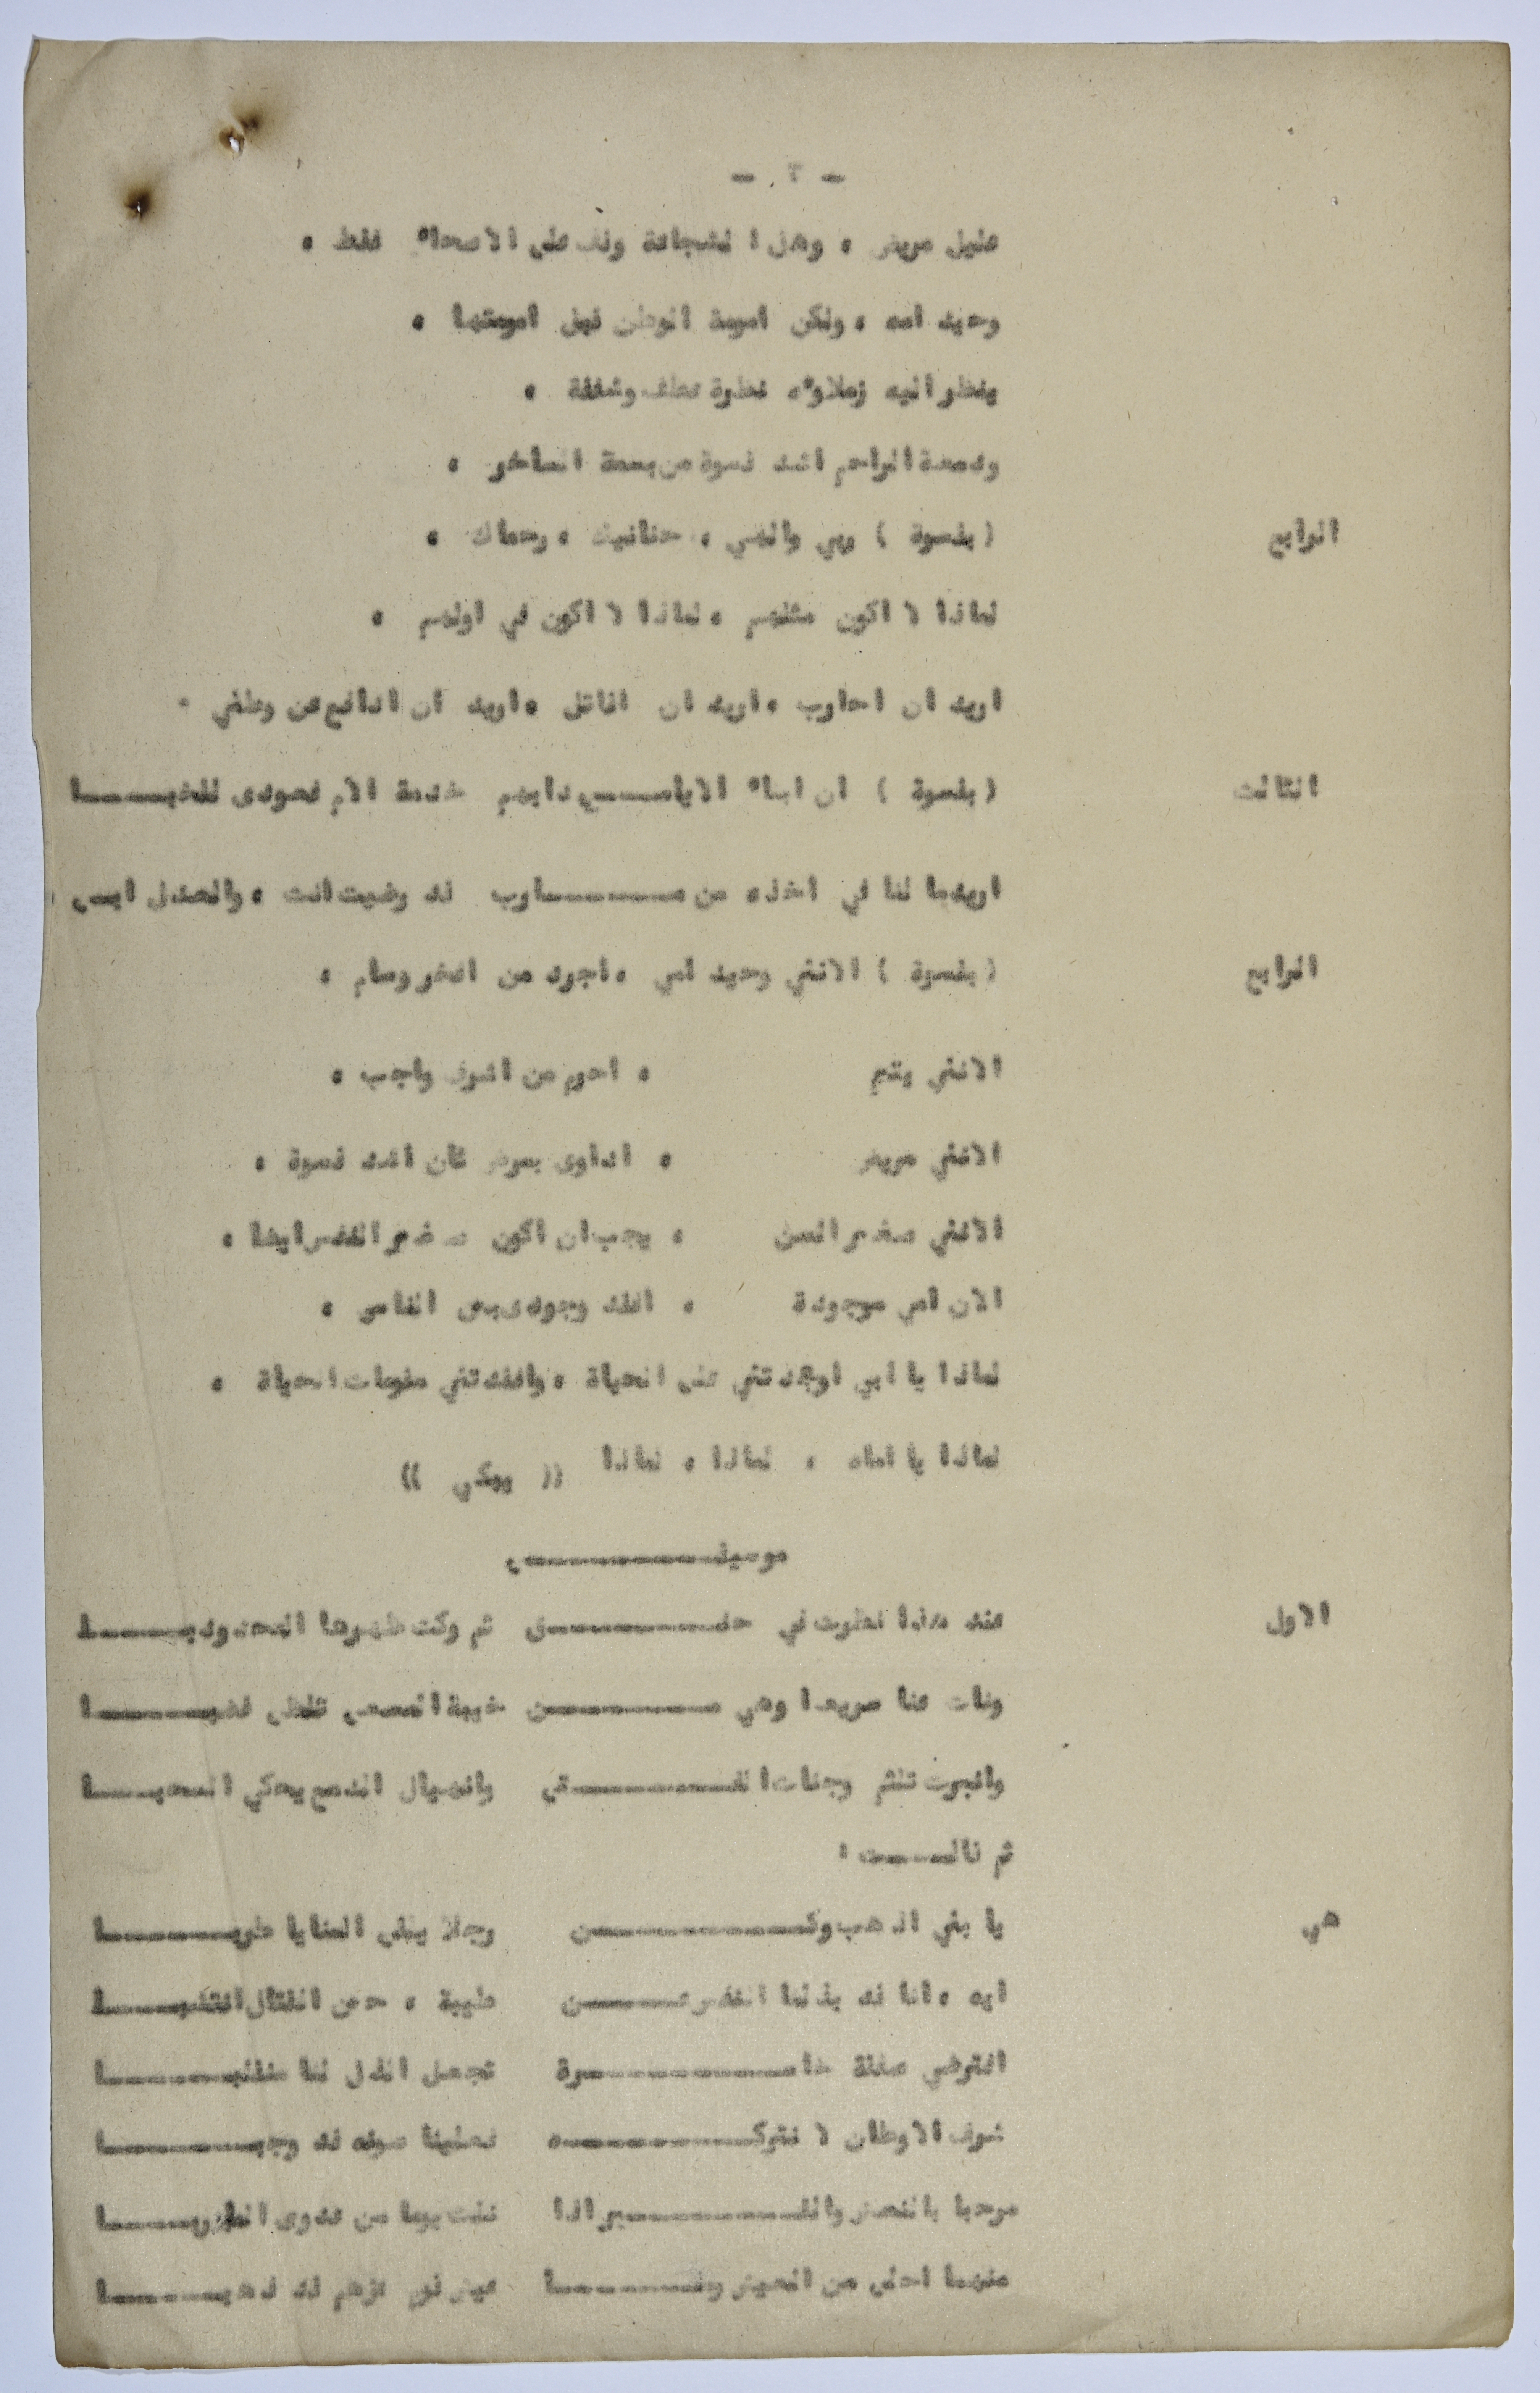 - ٢ -
عليل مريض ، وهل الشجاعة وقف على الاصحاء فقط ،
وحيد امه ، ولكن امومة الوطن قبل امومتها ،
ينظر اليه زملاؤه نظرة عطف وشفقة ،
ودمعة الراحم اشد قسوة من بسمة الساخر ،
الرابع ( بقسوة ) ربي والهي ، حنانيك ، رحماك ،
لماذا لا اكون مثلهم ، لماذا لا اكون في اولهم ،
اريد ان احارب ، اريد ان اقاتل ، اريد ان ادافع عن وطني .
الثالث ( بقسوة ) ان ابناء الايامــــى دأبهم خدمة الام فعودى للخبــــا
اوبدبا لنا في اخذه من مــــارب قد رضيت انت ، والعدل ابى
الرابع ( بقسوة ) الانني وحيد امي ، اجرد من افخر وسام ،
الانني يتيم ، احرم من اشرف واجب ،
الانني مريض ، اداوى بمرض ثان اشد قسوة ،
الانني صغير السن ، يجب ان اكون صغير القدر ايضا ،
الان امي موجودة ، افقد وجودى بين الناس ،
لماذا يا ابي اوجدتني على الحياة ، وافقدتني مقومات الحياة ،
لماذا يا اماه ، لماذا ، لماذا (( يبكي ))
موسيقــــى
الاول عند هذا نظرت في حنــــق ثم ولت ظهرها المحدودبــــا
ونات عنا سريعا وهي مــــن خيبة المسعى تلظى غضبــــا
وانبرت تلثم وجنات الفــــتى وانهيال الدمع يحكي السحبــــا
ثم قالــــت :
هي يا بني اذهب وكــــن رجلا يلقى المنايا طربــــا
ايه ، انا قد بذلنا النفس عــــن طيبة ، حين القتال التهبــــا
افترضى صفقة خاســــرة تجعل الذل لنا منقلبــــا
شرف الاوطان لا نتركــــه فعلينا صونه قد وجبــــا
مرحبا بالنعش والقــــبر اذا نلت يوما من عدوى الاربــــا
عندنا احلى من العيش ومــــا عيش قوم عزهم قد ذهبــــا